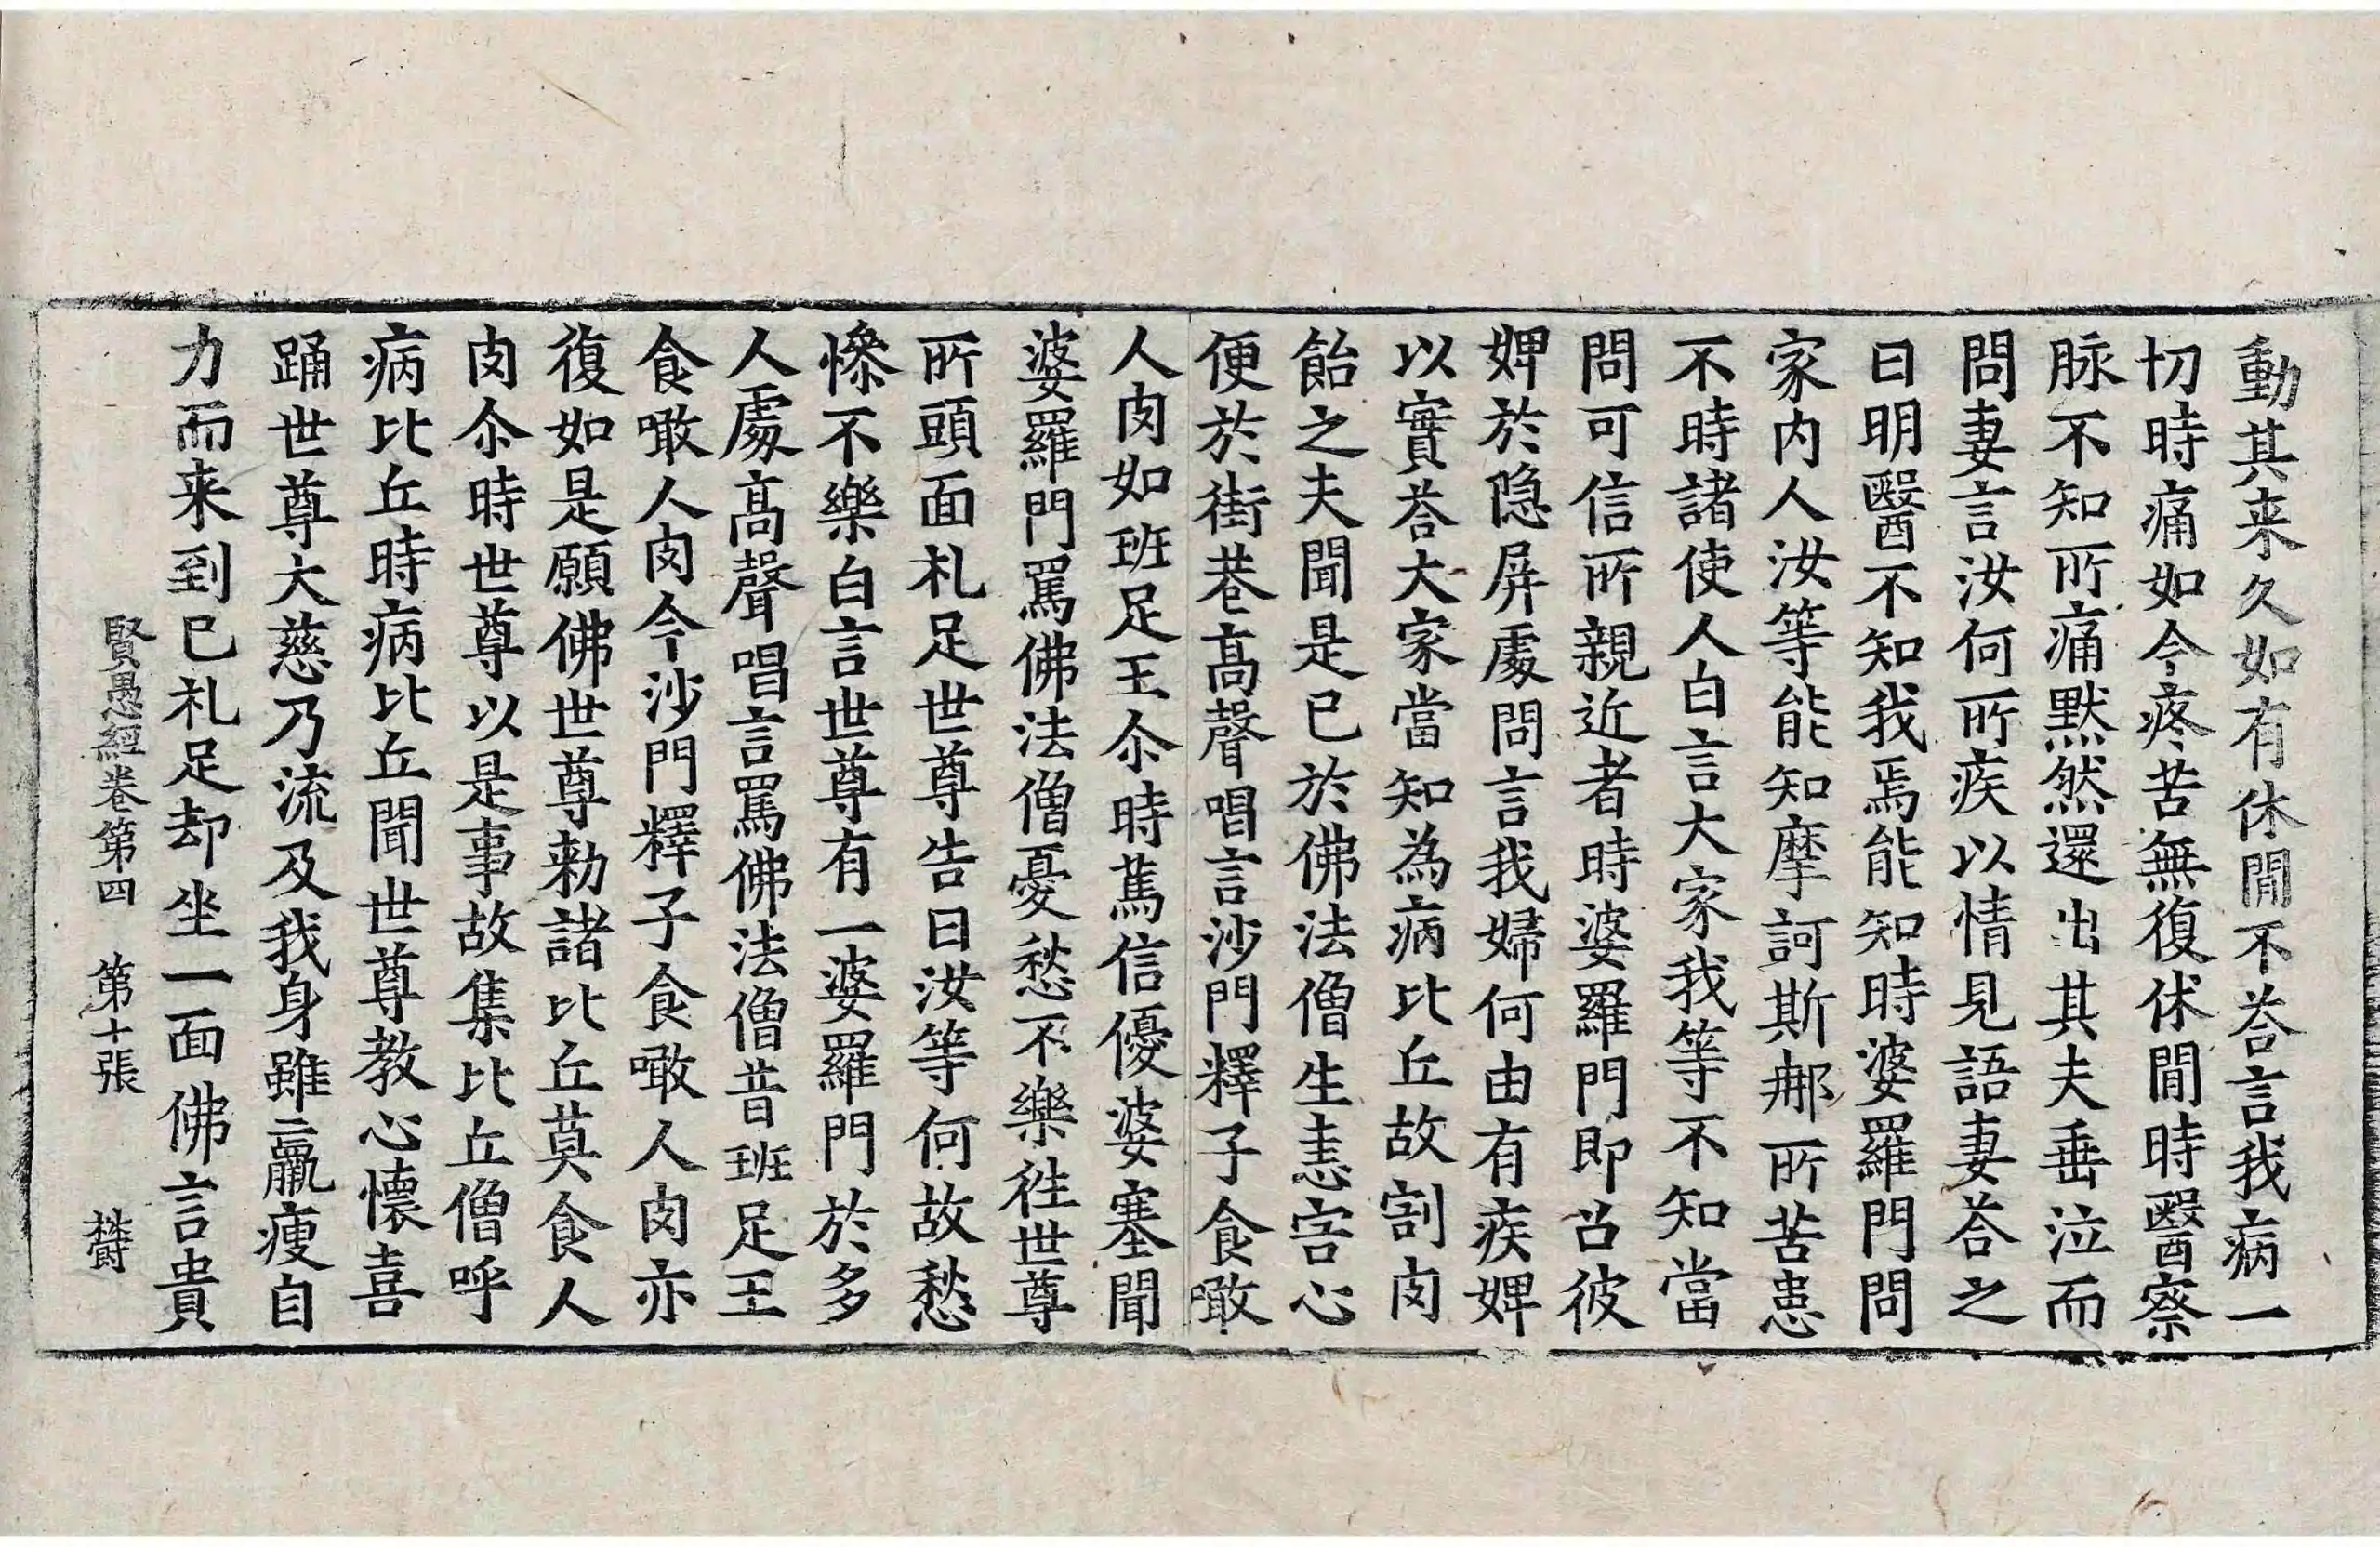 動其来久如有休閒不荅言我病一
切時痛如今疼苦無復休閒時醫察
脉不知所痛黙然還出其夫垂泣而
問妻言汝何所疾以情見語妻荅之
曰明醫不知我焉能知時婆羅門問
家内人汝等能知摩訶斯那所苦患
不時諸使人白言大家我等不知當
問可信所親近者時婆羅門即召彼
婢於隐屏處問言我婦何由有疾婢
以實荅大家當知為病比丘故割肉
飴之夫聞是已於佛法僧生恚害心
便於街巷髙聲唱言沙門釋子食噉
人肉如班足王尒時篤信優婆塞聞
婆羅門罵佛法僧憂愁不樂往世尊
所頭面札足世尊告曰汝等何故愁
慘不樂白言世尊有一婆羅門於多
人處髙聲唱言罵佛法僧昔班足王
食噉人肉今沙門釋子食噉人肉亦
復如是願佛世尊勑諸比丘莫食人
肉尒時世尊以是事故集比丘僧呼
病比丘時病比丘聞世尊教心懷喜
踊世尊大慈乃流及我身雖羸瘦自
力而来到已札足却坐一面佛言貴
賢愚經卷第四　第十張